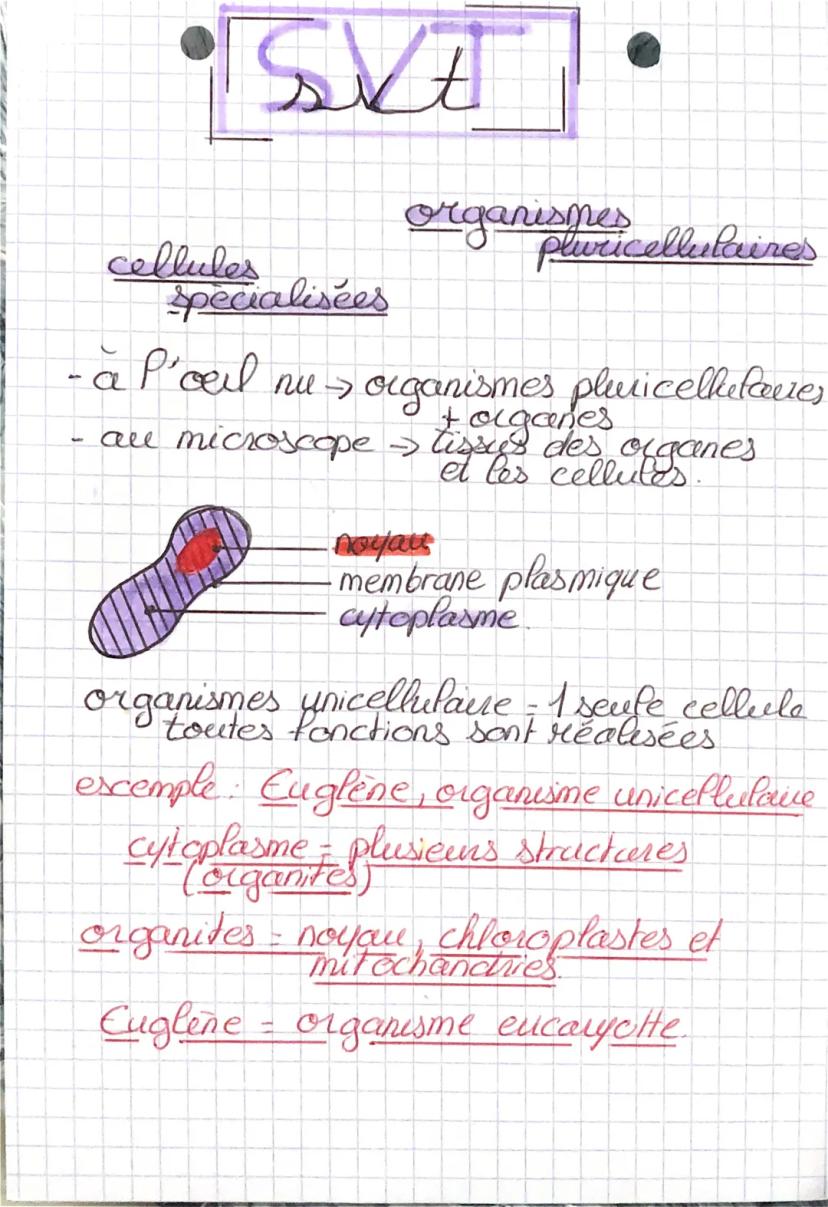 SVT
svt
organismes
pluricellulaires
cellules
spécialisées
- à l'œil nu → organismes pluricellulaires
+ organes
- au microscope → tissus des organes
et les cellules.
noyau
membrane plasmique
cytoplasme.
organismes unicellulaire = 1 seule cellule
toutes fonctions sont réalisées
escemple : Euglène, organisme unicellulaire
cytoplasme = plusieurs structures
(organites)
organites = noyau, chloroplastes et
mitochandries.
Euglène = organisme eucaryotte.